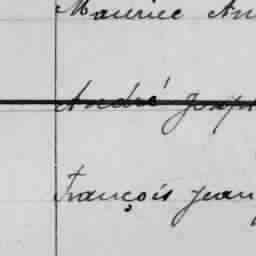 Maurice An
André Joseph
François Jean